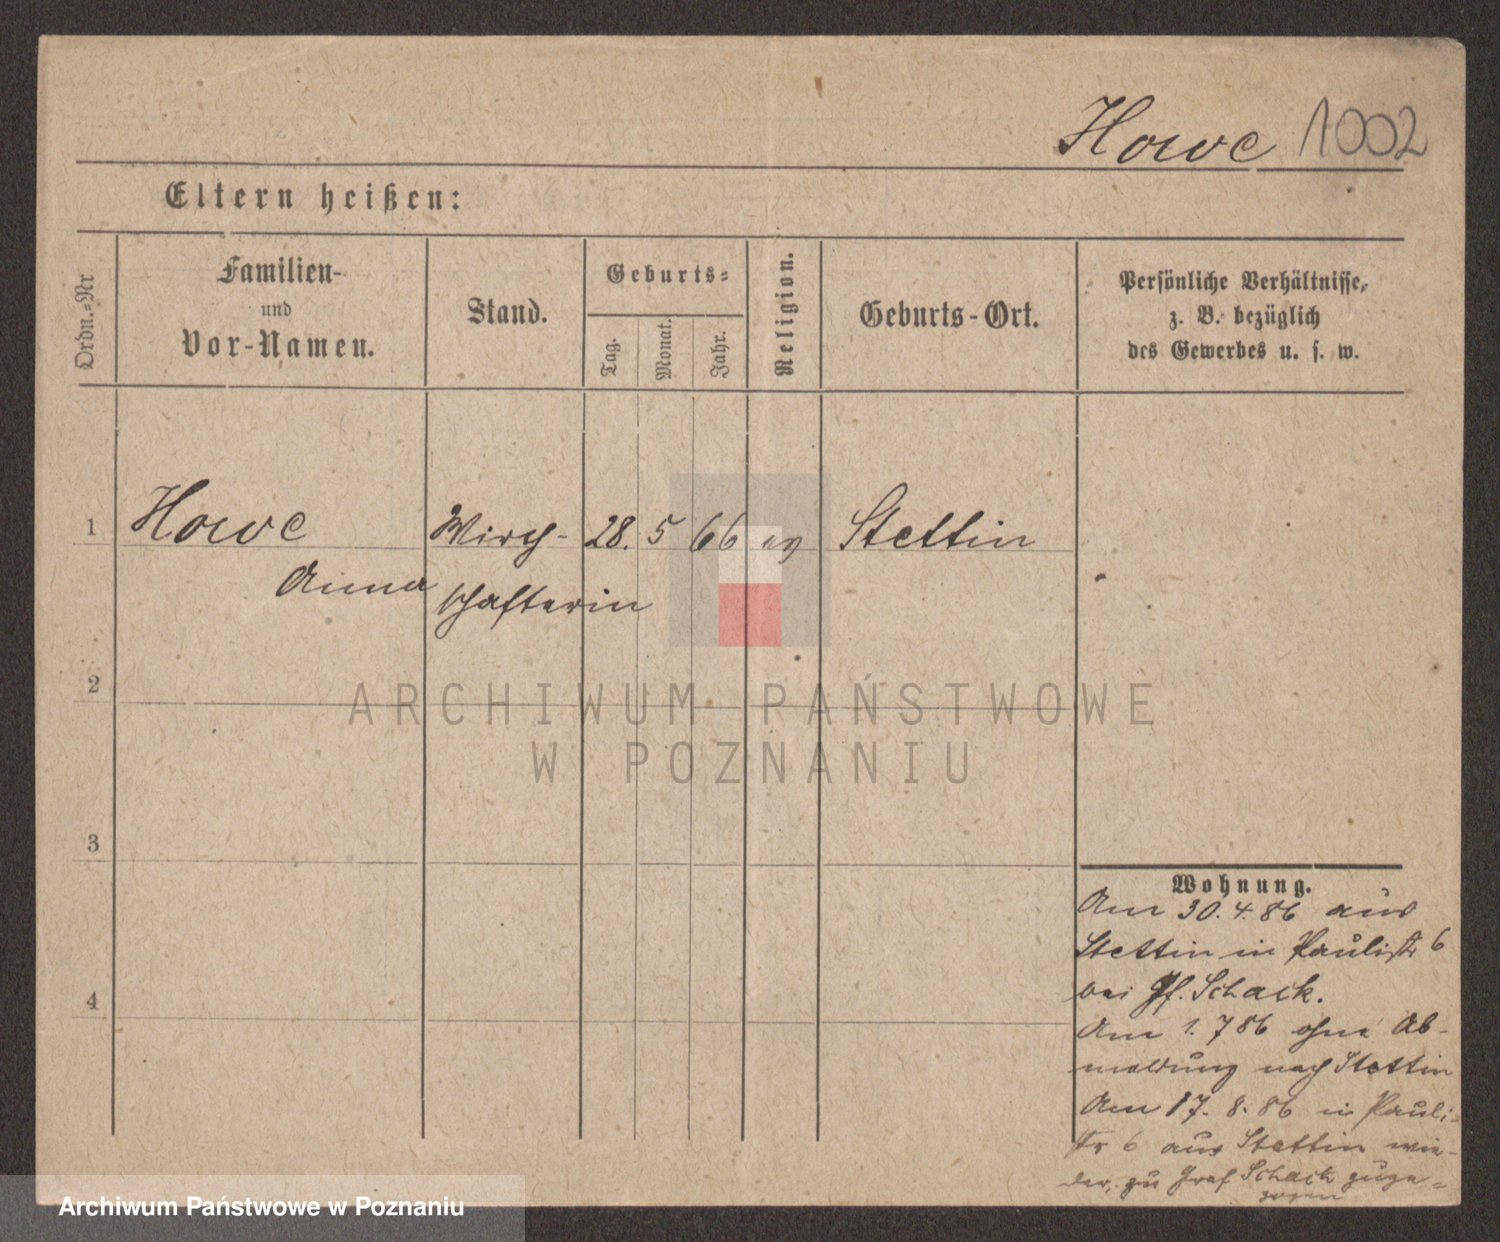 Howe 1002
Eltern heißen:
Ordn.-Nr
Familien-
und
Vor-Namen.
Stand.
Geburts-
Tag.
Monat.
Jahr.
Religion.
Geburts-Ort.
Persönliche Verhältnisse,
z. B. bezüglich
des Gewerbes u. s. w.
1 Howe Wirth- 28. 5 66 ev Stettin
Anna schafterin
2
3
4
Wohnung.
Am 30.4.86 aus
Stettin in Paulistr 6
bei Gf. Schack.
Am 1.786 ohne Ab-
meldung nach Stettin
Am 17. 8. 86 in Pauli-
str 6 aus Stettin wie-
der, zu Graf Schack zuge-
zogen
ARCHIWUM PAŃSTWOWE
W POZNANIU
Archiwum Państwowe w Poznaniu